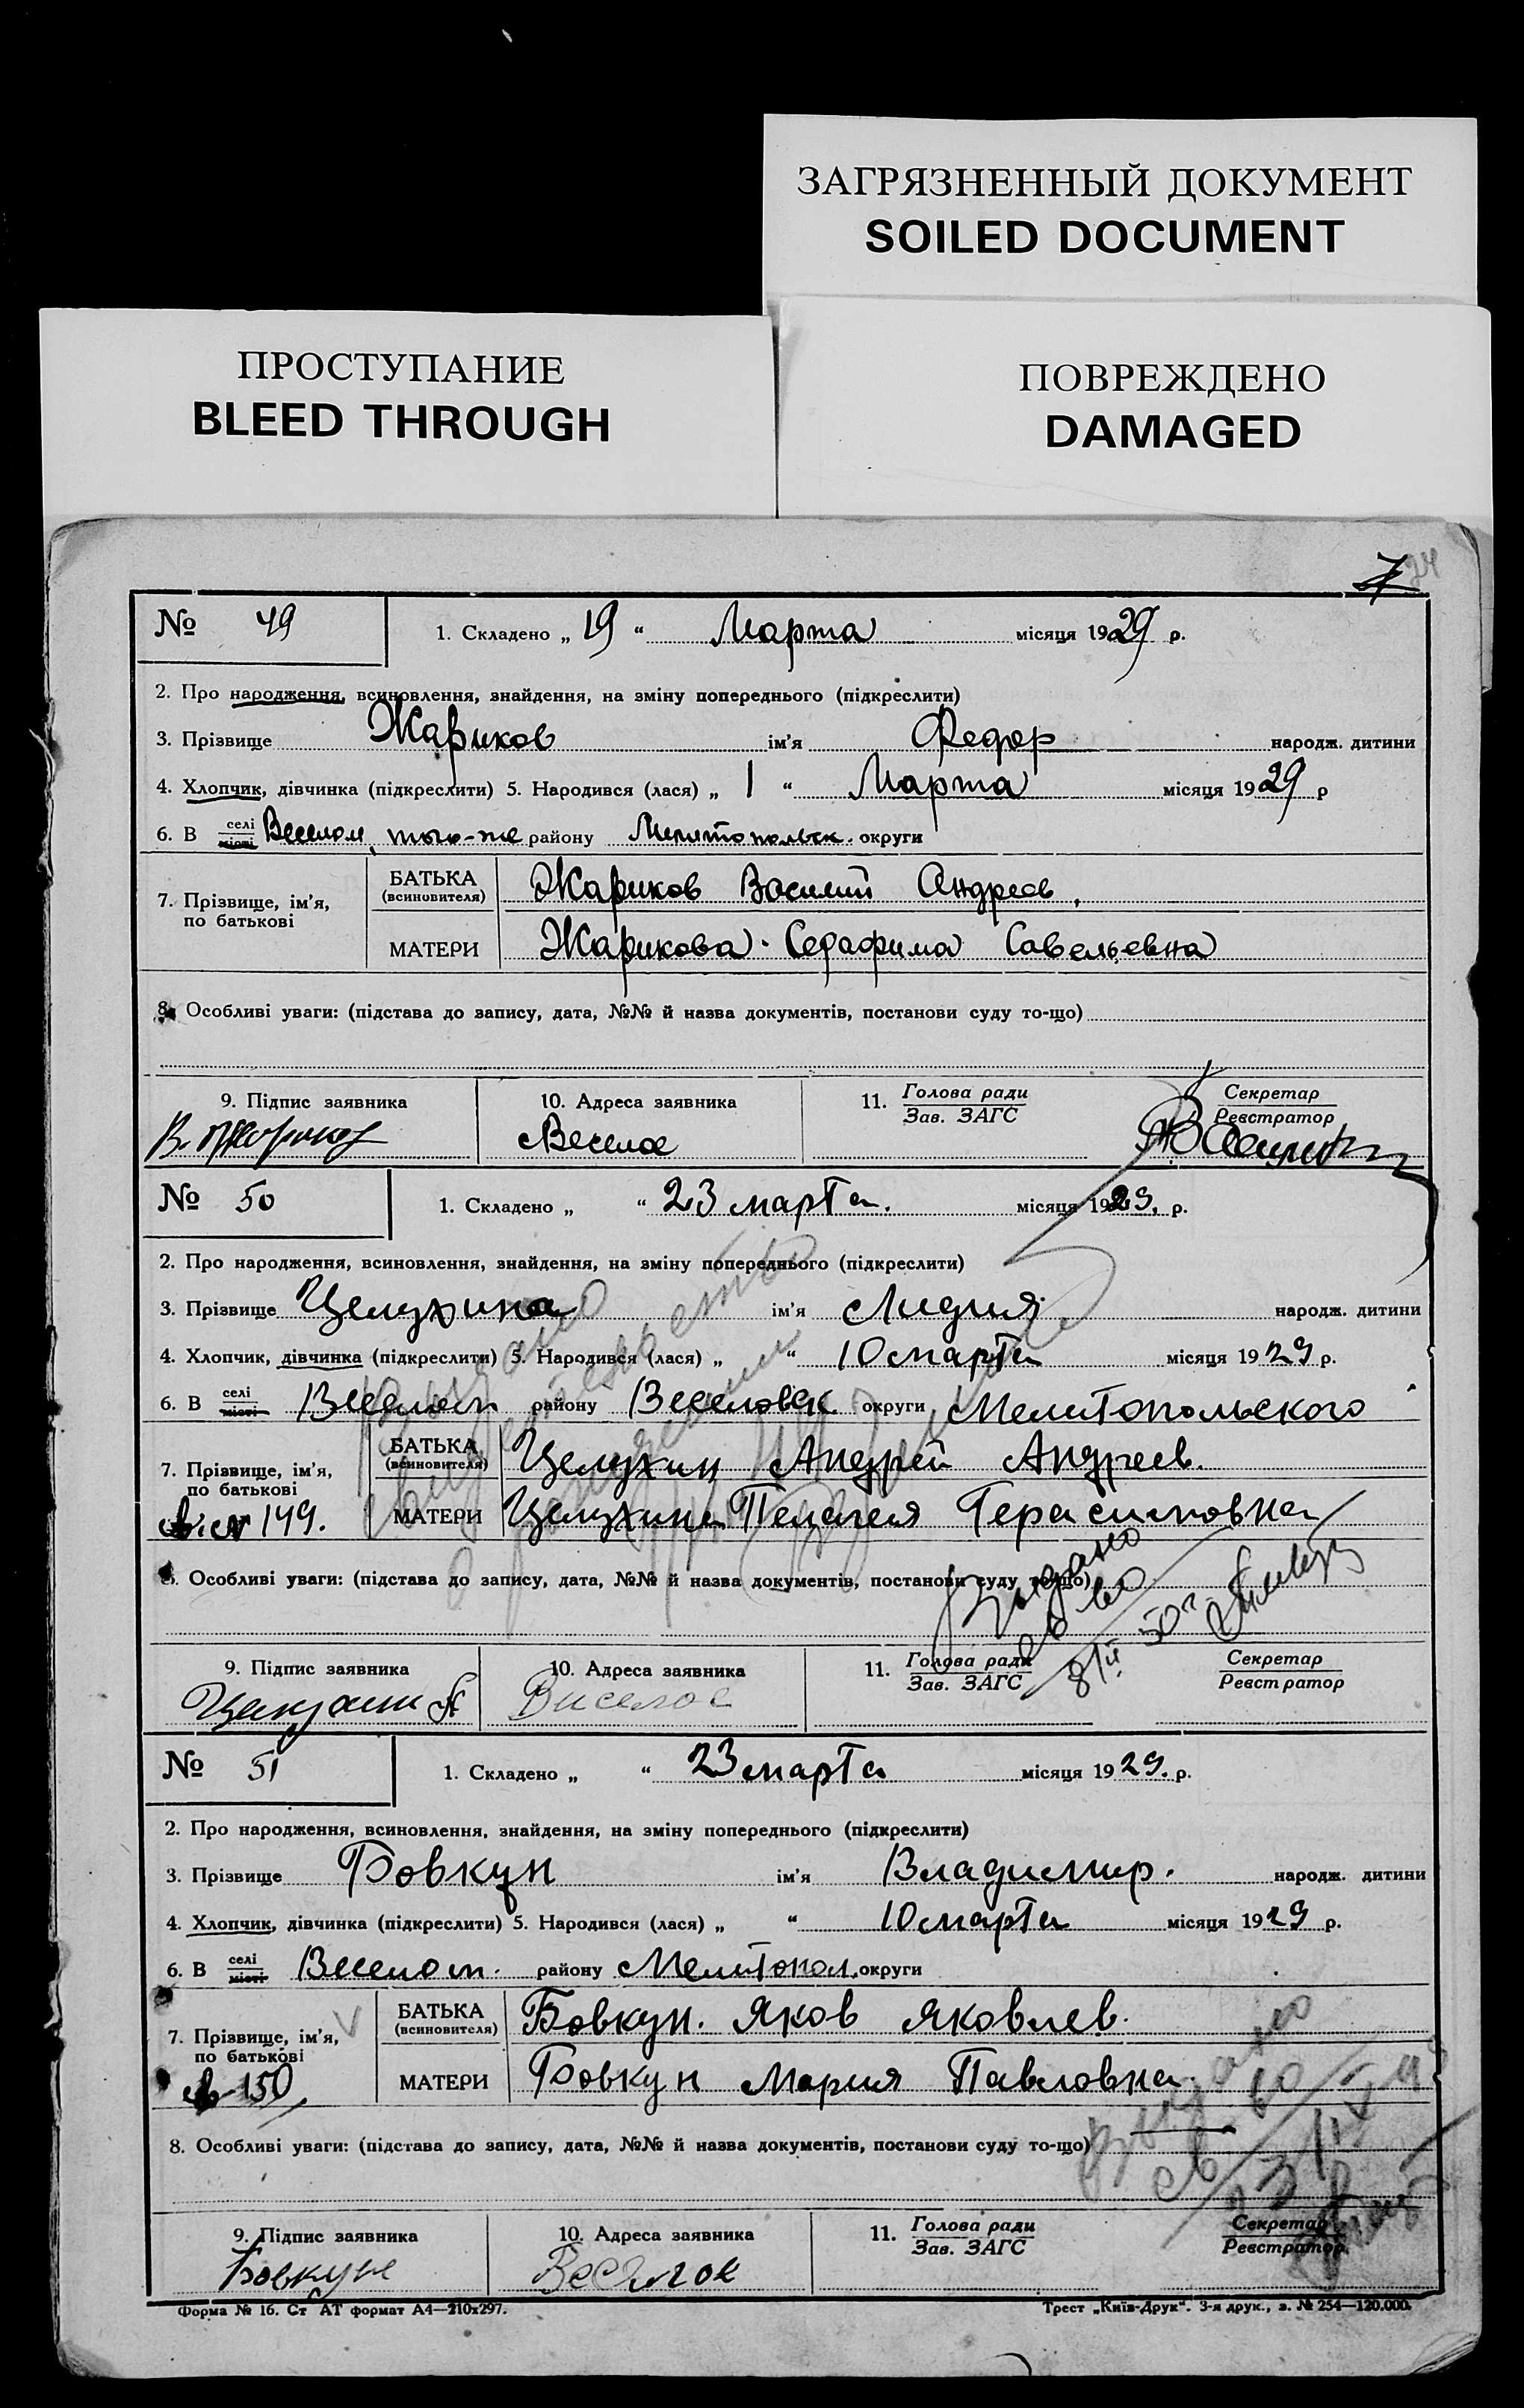 ЗАГРЯЗНЕННЫЙ ДОКУМЕНТ
SOILED DOCUMENT
ПРОСТУПАНИЕ
BLEED THROUGH
ПОВРЕЖДЕНО
DAMAGED
7 24
№ 49 1. Складено „ 19 “ Марта місяця 1929 р.
2. Про народження, всиновлення, знайдення, на зміну попереднього (підкреслити)
3. Прізвище Жариков ім’я Федор народж. дитини
4. Хлопчик, дівчинка (підкреслити) 5. Народився (лася) „ 1 “ Марта місяця 1929 р
6. В селі міоті Веселом, того-же району Мелитопольск. округи
7. Прізвище, ім’я, по батькові
БАТЬКА (всиновителя) Жариков Василий Андреев,
МАТЕРИ Жарикова Серафима Савельевна
8. Особливі уваги: (підстава до запису, дата, №№ й назва документів, постанови суду то-що)
9. Підпис заявника 10. Адреса заявника 11. Голова ради Зав. ЗАГС Секретар Реєстратор
В. Жариков Веселое
№ 50 1. Складено „ “ 23 марта. місяця 1929. р.
2. Про народження, всиновлення, знайдення, на зміну попереднього (підкреслити)
3. Прізвище Целухина ім’я Лидия народж. дитини
4. Хлопчик, дівчинка (підкреслити) 5. Народився (лася) „ “ 10 марта місяця 1929 р.
6. В селі місті Веселом району Веселовск. округи Мелитопольского
7. Прізвище, ім’я, по батькові
БАТЬКА (всиновителя) Целухин Андрей Андреев.
МАТЕРИ Целухина Пелагея Герасимовна
№ 149.
8. Особливі уваги: (підстава до запису, дата, №№ й назва документів, постанови суду то-що)
Выдано
св во
8/II 50г
9. Підпис заявника 10. Адреса заявника 11. Голова ради Зав. ЗАГС Секретар Реєстратор
Веселое
№ 51 1. Складено „ “ 23 марта місяця 1929. р.
2. Про народження, всиновлення, знайдення, на зміну попереднього (підкреслити)
3. Прізвище Бовкун ім’я Владимир. народж. дитини
4. Хлопчик, дівчинка (підкреслити) 5. Народився (лася) „ “ 10 марта місяця 1929 р.
6. В селі місті Веселом. району Мелитопол. округи
7. Прізвище, ім’я, по батькові
БАТЬКА (всиновителя) Бовкун. Яков Яковлев.
МАТЕРИ Бовкун Мария Павловна.
150
Выдано
св во
8. Особливі уваги: (підстава до запису, дата, №№ й назва документів, постанови суду то-що)
9. Підпис заявника 10. Адреса заявника 11. Голова ради Зав. ЗАГС Секретар Реєстратор
Бовкун Веселое
Форма № 16. Ст АТ формат А4—210х297. Трест „Київ-Друк“. 3-я друк., з. № 254—120.000.